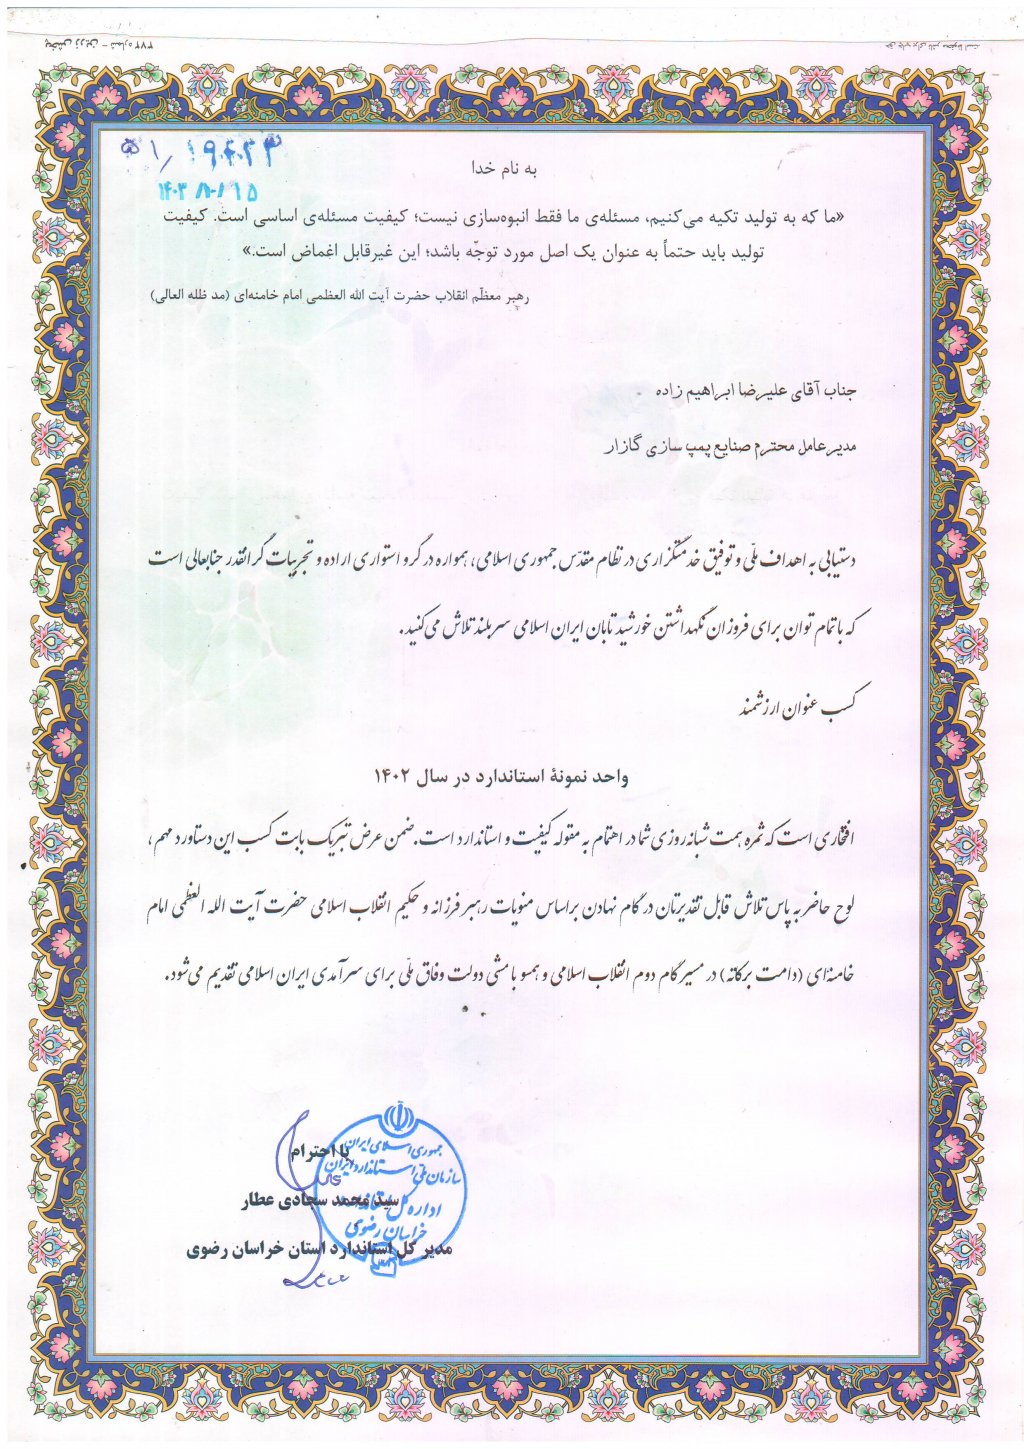 بخش زرین - شماره ۲۷۲
۵۱/۱۹۴۲۳
۱۴۰۳/۱۰/۱۵
به نام خدا
«ما که به تولید تکیه می‌کنیم، مسئله‌ی ما فقط انبوه‌سازی نیست؛ کیفیت مسئله‌ی اساسی است. کیفیت
تولید باید حتماً به عنوان یک اصل مورد توجّه باشد؛ این غیرقابل اغماض است.»
رهبر معظّم انقلاب حضرت آیت الله العظمی امام خامنه‌ای (مد ظله العالی)
جناب آقای علیرضا ابراهیم زاده
مدیرعامل محترم صنایع پمپ سازی گازار
دستیابی به اهداف ملّی و توفیق خدمتگزاری در نظام مقدّس جمهوری اسلامی، همواره در گرو استواری اراده و تجربیات گرانقدر جنابعالی است
که با تمام توان برای فروزان نگهداشتن خورشید تابان ایران اسلامی سربلند تلاش می‌کنید.
کسب عنوان ارزشمند
واحد نمونهٔ استاندارد در سال ۱۴۰۲
افتخاری است که ثمره همت شبانه‌روزی شما در اهتمام به مقوله کیفیت و استاندارد است. ضمن عرض تبریک بابت کسب این دستاورد مهم،
لوح حاضر به پاس تلاش قابل تقدیرتان در گام نهادن براساس منویات رهبر فرزانه و حکیم انقلاب اسلامی حضرت آیت الله العظمی امام
خامنه‌ای (دامت برکاته) در مسیر گام دوم انقلاب اسلامی و همسو با مشی دولت وفاق ملّی برای سرآمدی ایران اسلامی تقدیم می‌شود.
با احترام
سید محمد سجادی عطار
مدیر کل استاندارد استان خراسان رضوی
جمهوری اسلامی ایران
سازمان ملّی استاندارد ایران
اداره کل استاندارد
خراسان رضوی